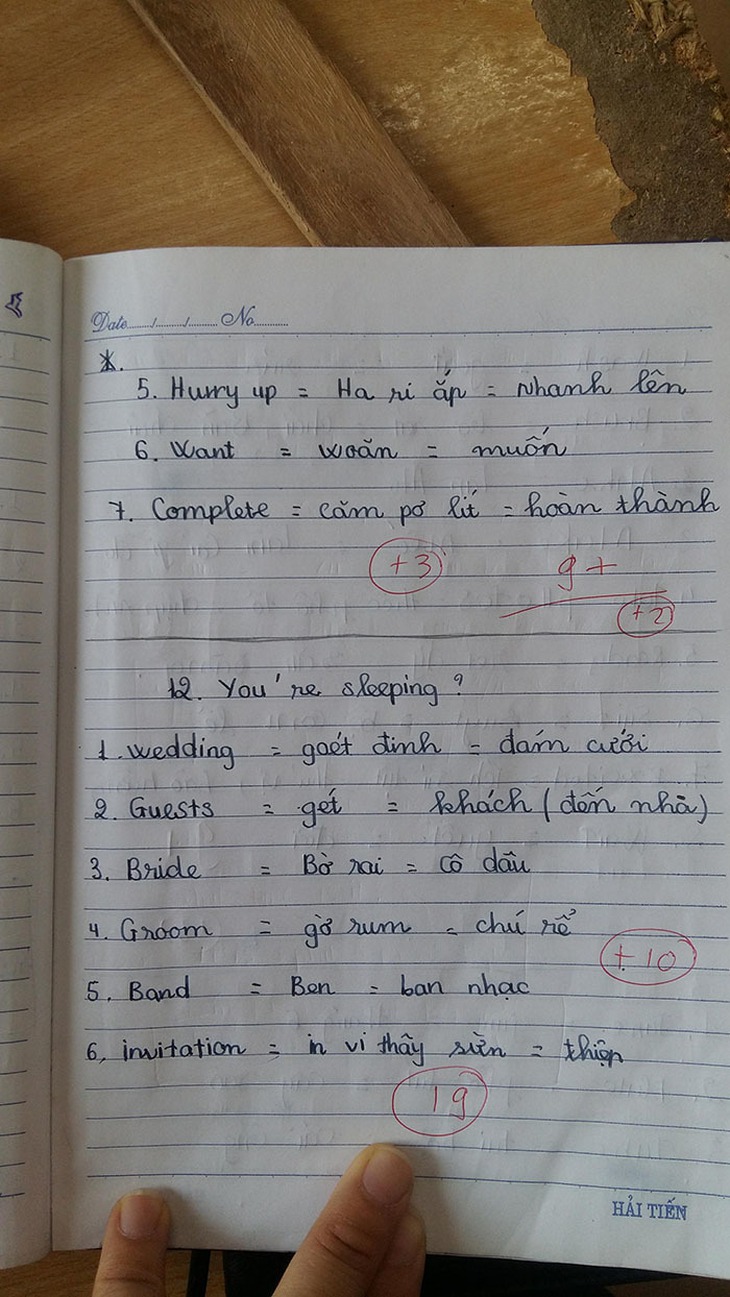 Date......./......./....... No..........
5. Hurry up = Ha ri ắp = Nhanh lên
6. Want = woăn = muốn
7. Complete = căm pơ lít = hoàn thành
+3 9+
+2
12. You're sleeping?
1. wedding = goét đinh = đám cưới
2. Guests = gét = khách (đến nhà)
3. Bride = Bờ rai = cô dâu
4. Groom = gờ rum = chú rể
+10
5. Band = Ben = ban nhạc
6, invitation = in vi thây sừn = thiệp
19
HẢI TIẾN